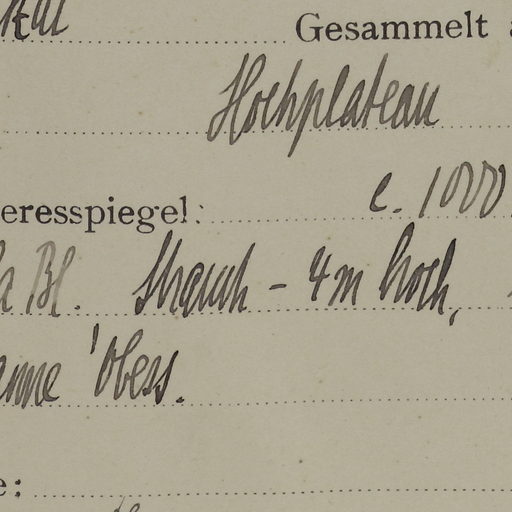 Gesammelt
Hochplateau
eresspiegel: c. 1000
Bl. Strauch - 4 m hoch,
e: